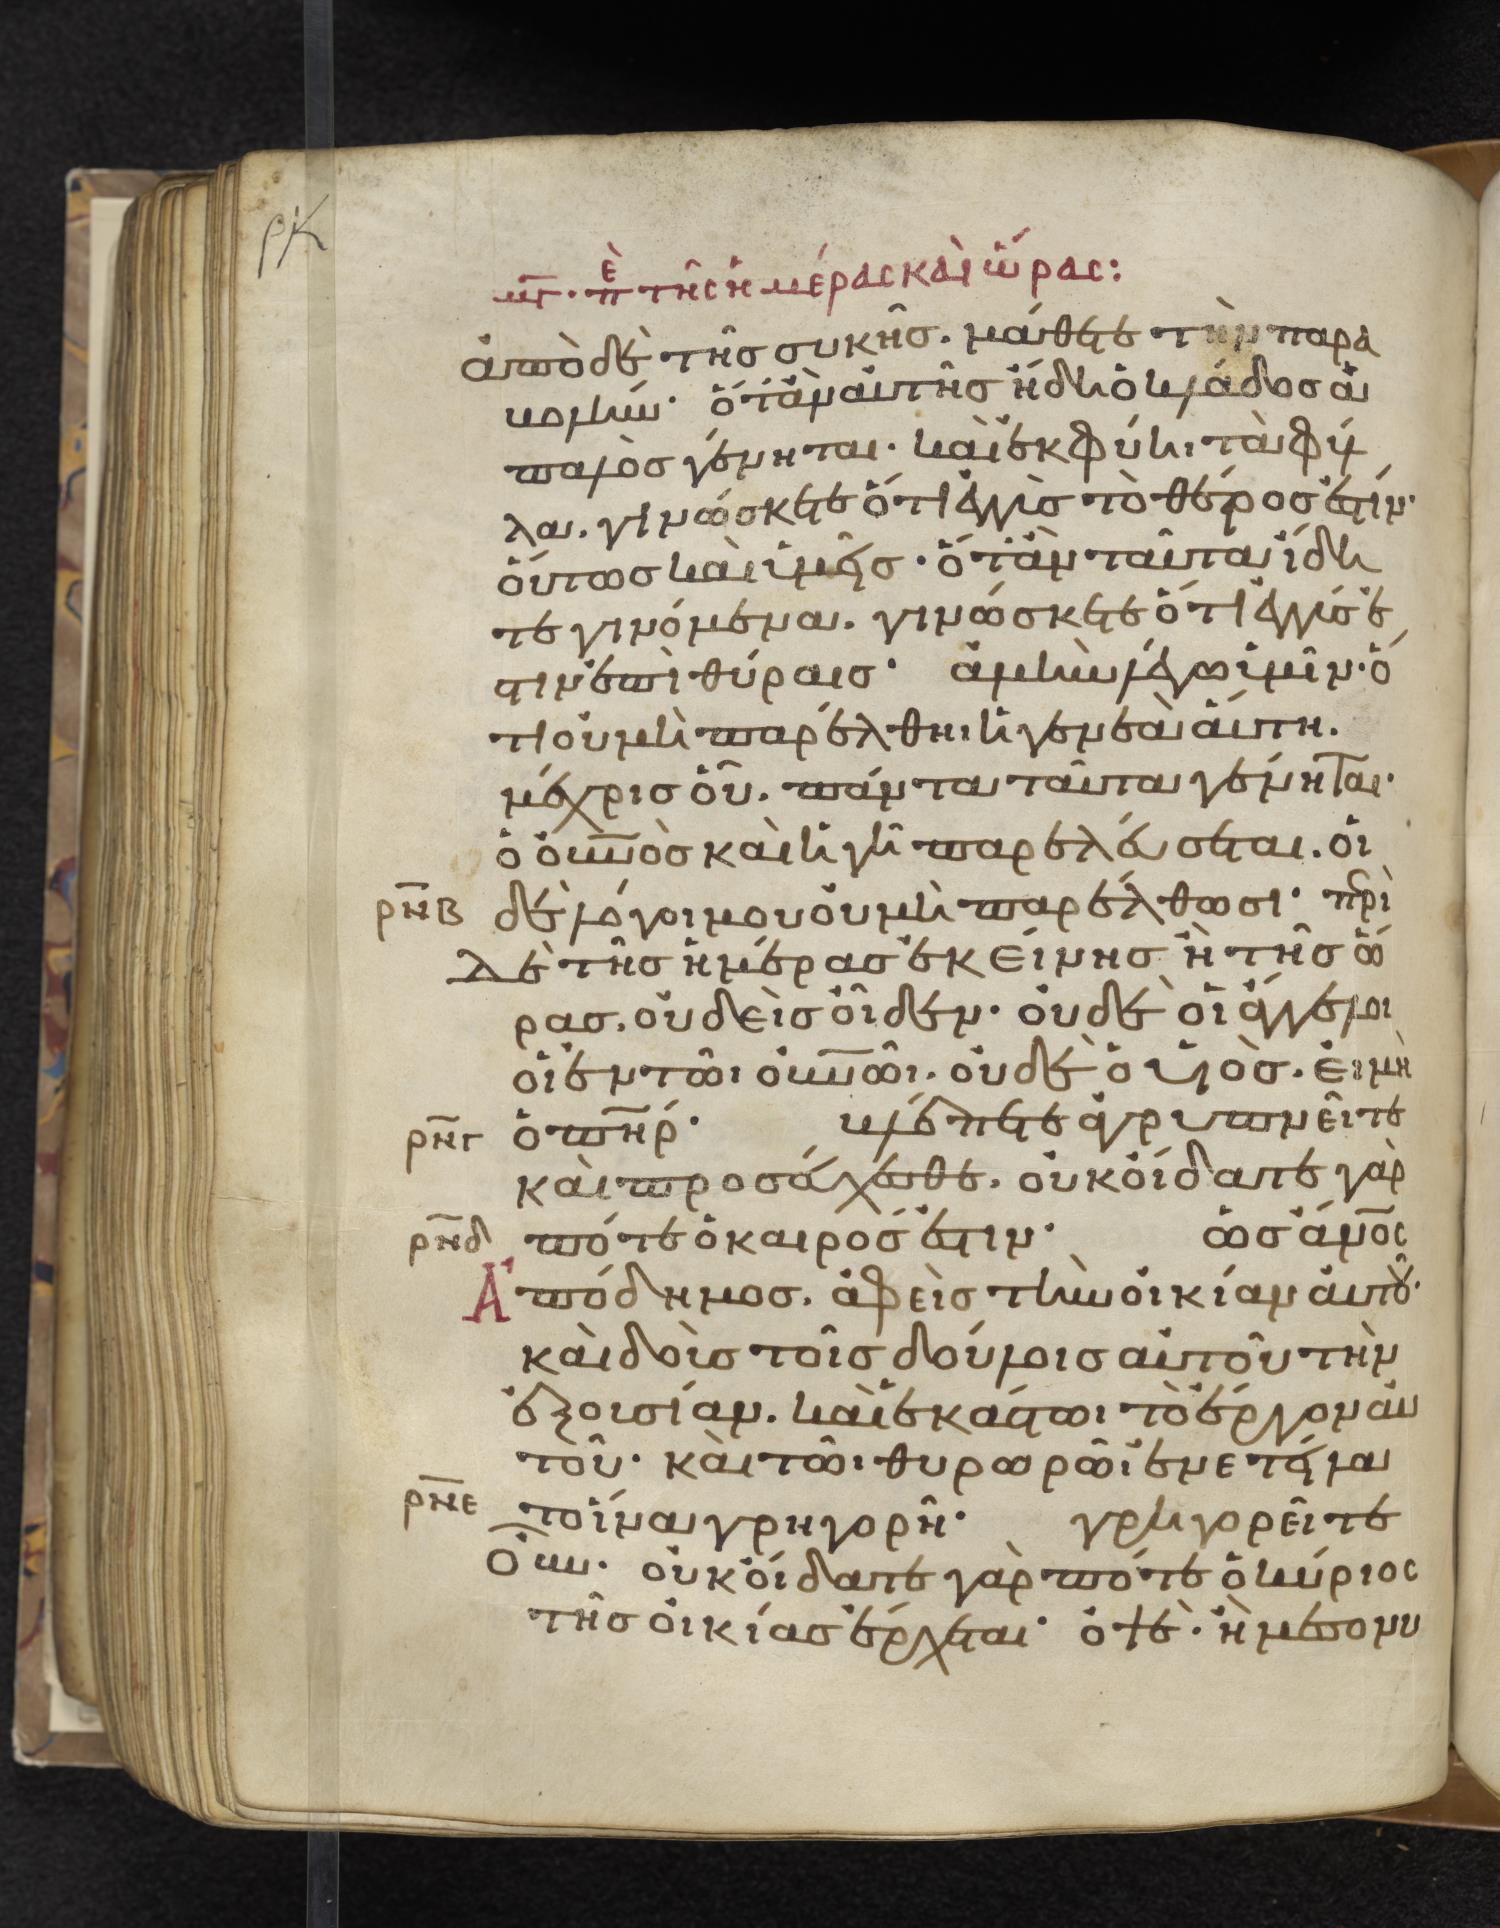 ρκ
μγ. πε τῆς ἡμέρας καὶ ὥρας:
ἀπὸ δὲ τῆς συκῆς. μάθετε τὴν παρα
βολήν· ὅταν αὐτῆς ἤδη ὁ κλάδος ἁ
παλὸς γένηται. καὶ ἐκφύηι τὰ φύ
λα. γινώσκετε ὅτι ἐγγὺς τὸ θέρος ἐστίν·
οὕτως καὶ ὑμεῖς· ὅταν ταῦτα ἴδη
τε γινόμενα. γινώσκετε ὅτι ἐγγύς ἐ
στιν ἐπὶ θύραις· ἀμὴν λέγω ὑμῖν· ὅ
τι οὐ μὴ παρέλθηι ἡ γενεὰ αὕτη.
μέχρις οὗ. πάντα ταῦτα γένηται·
ὁ οὐν̅ὸς καὶ ἡ γῆ παρελεύσεται. οἱ
ρν̅β δὲ λόγοι μου οὐ μὴ παρέλθωσι· πρὶ
δὲ τῆς ἡμέρας ἐκείνης ἢ τῆς ὥ
ρας. οὐδεὶς οἶδεν· οὐδὲ οἱ ἄγγελοι
οἱ ἐν τῶι οὐν̅ῶι. οὐδὲ ὁ υἱὸς. εἰ μὴ
ρν̅γ ὁ πη̅ρ· βλέπετε ἀγρυπνεῖτε
καὶ προσεύχεσθε. οὐκ οἴδατε γὰρ
ρν̅δ πότε ὁ καιρός ἐστιν· ὡς ἀν̅ος
Ἀπόδημος. ἀφεὶς τὴν οἰκίαν αὐτοῦ·
καὶ δοὺς τοῖς δούλοις αὐτοῦ τὴν
ἐξουσίαν. καὶ ἑκάστωι τὸ ἔργον αὐ
τοῦ· καὶ τῶι θυρωρῶι ἐνετείλα
ρν̅ε το ἵνα γρηγορῆ· γρηγορεῖτε
οὖν· οὐκ οἴδατε γὰρ πότε ὁ κύριος
τῆς οἰκίας ἔρχεται· ὀψὲ· ἢ μεσονυ